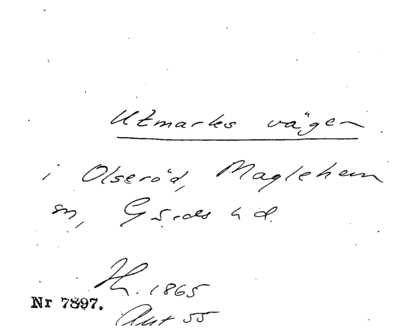 Utmarksvägen
i Olseröd, Maglehem
sn, Gärds hd.
H. 1865
Nr 7897.
Akt 55